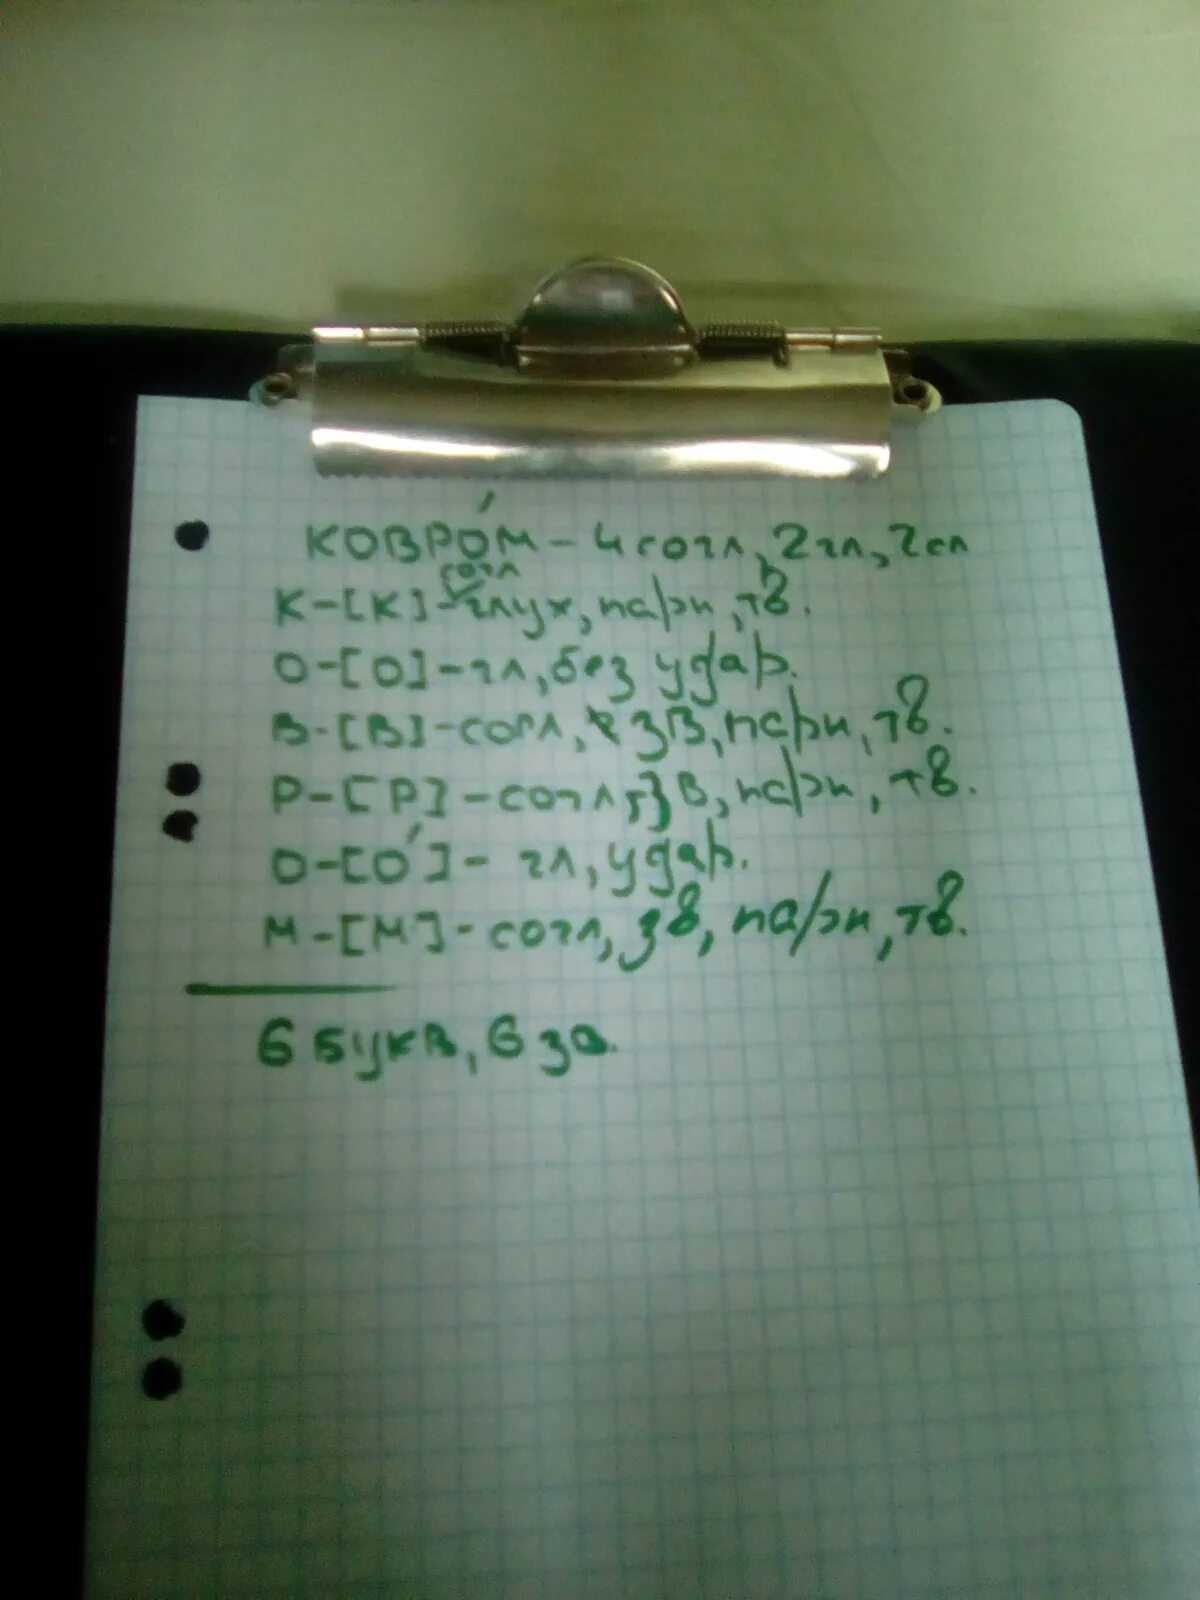 КОВРО́М - 4 согл, 2 гл, 2 сл
согл
К - [К] - глух, парн, тв.
О - [О] - гл, без удар.
В - [В] - согл, зв, парн, тв.
Р - [Р] - согл, зв, парн, тв.
О - [О́] - гл, удар.
М - [М] - согл, зв, парн, тв.
6 букв, 6 зв.